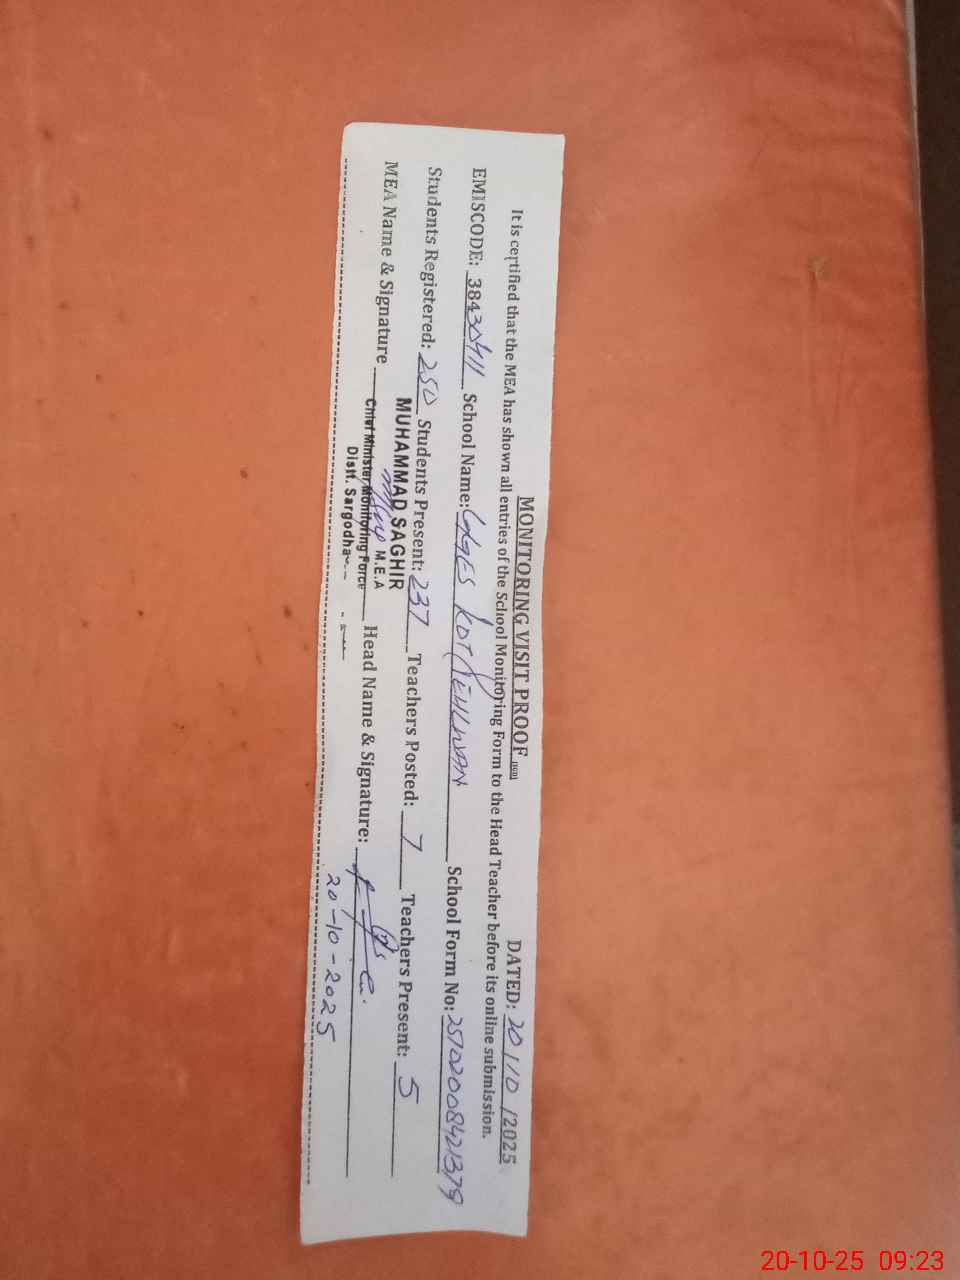 MONITORING VISIT PROOF DATED: 20/10/2025
It is certified that the MEA has shown all entries of the School Monitoring Form to the Head Teacher before its online submission.
EMISCODE: 38430411 School Name: GGES KOT PEHLWAN School Form No: 2510200842 1379
Students Registered: 250 Students Present: 237 Teachers Posted: 7 Teachers Present: 5
MUHAMMAD SAGHIR
M.E.A
MEA Name & Signature Head Name & Signature:
Chief Minister Monitoring Force
Distt. Sargodha
20-10-2025
20-10-25 09:23